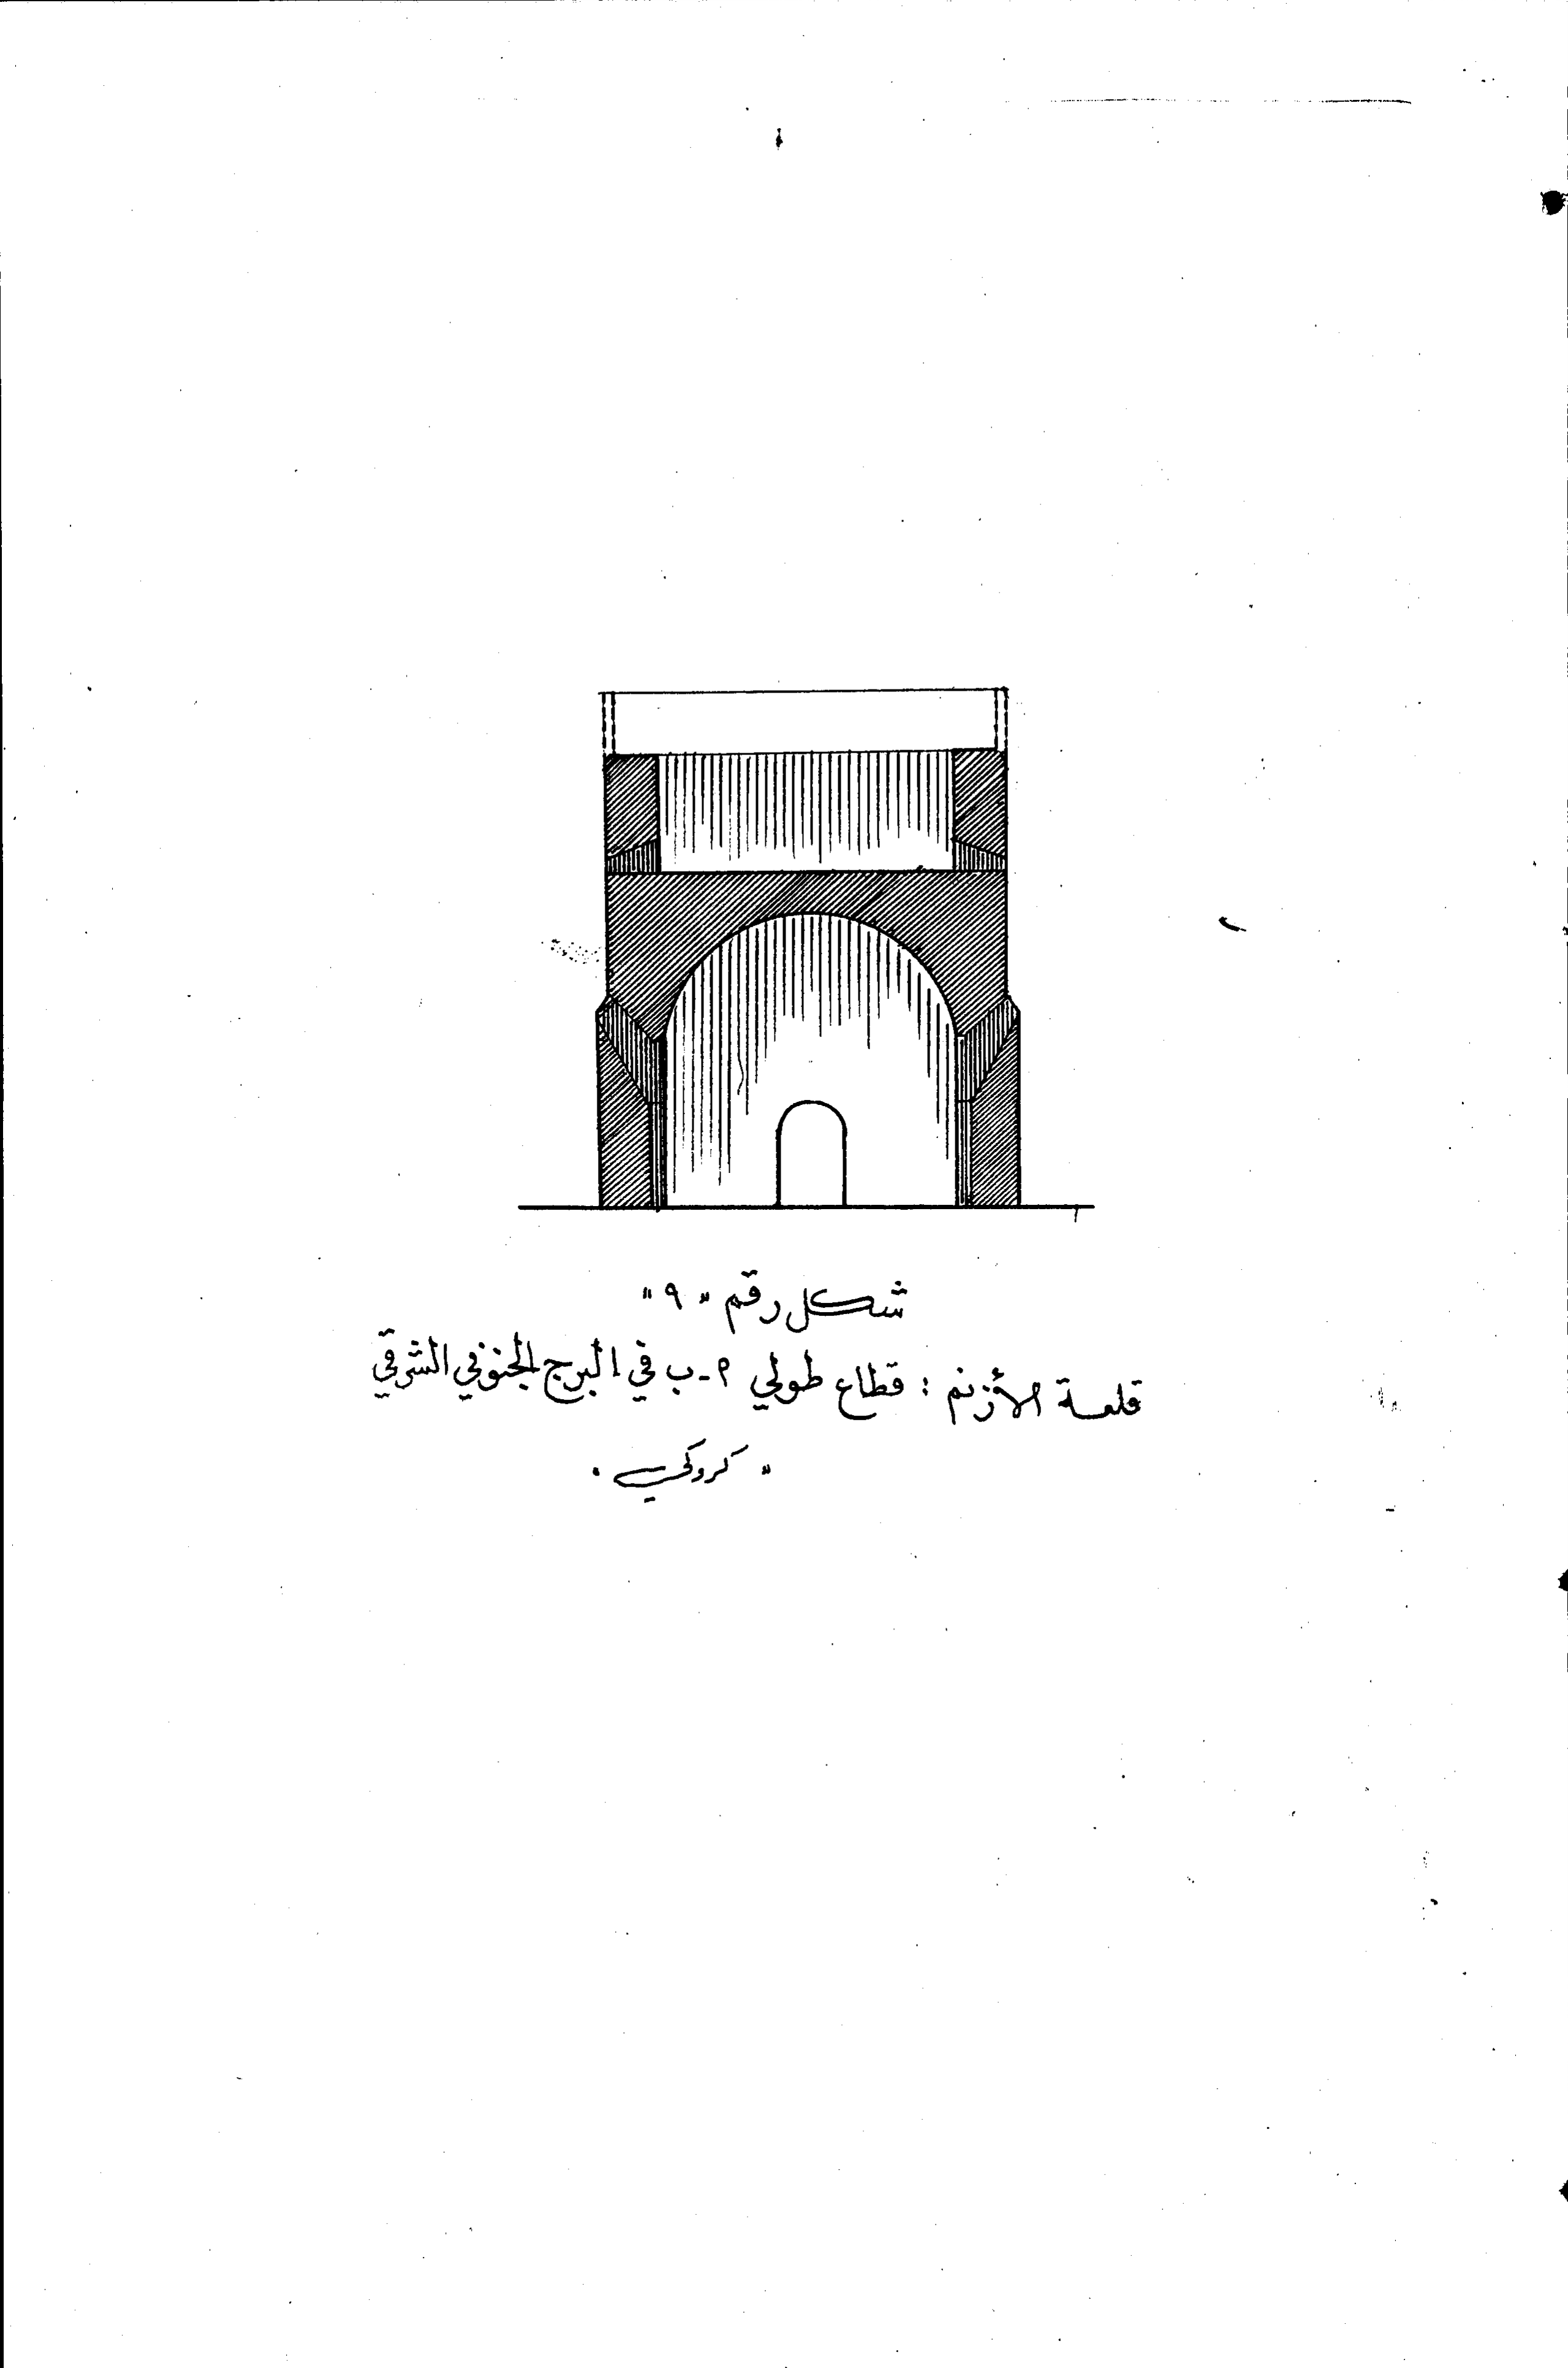 شكل رقم "٩"
قلعة الأزنم : قطاع طولي م - ب في البرج الجنوبي الشرقي
" كروكي .